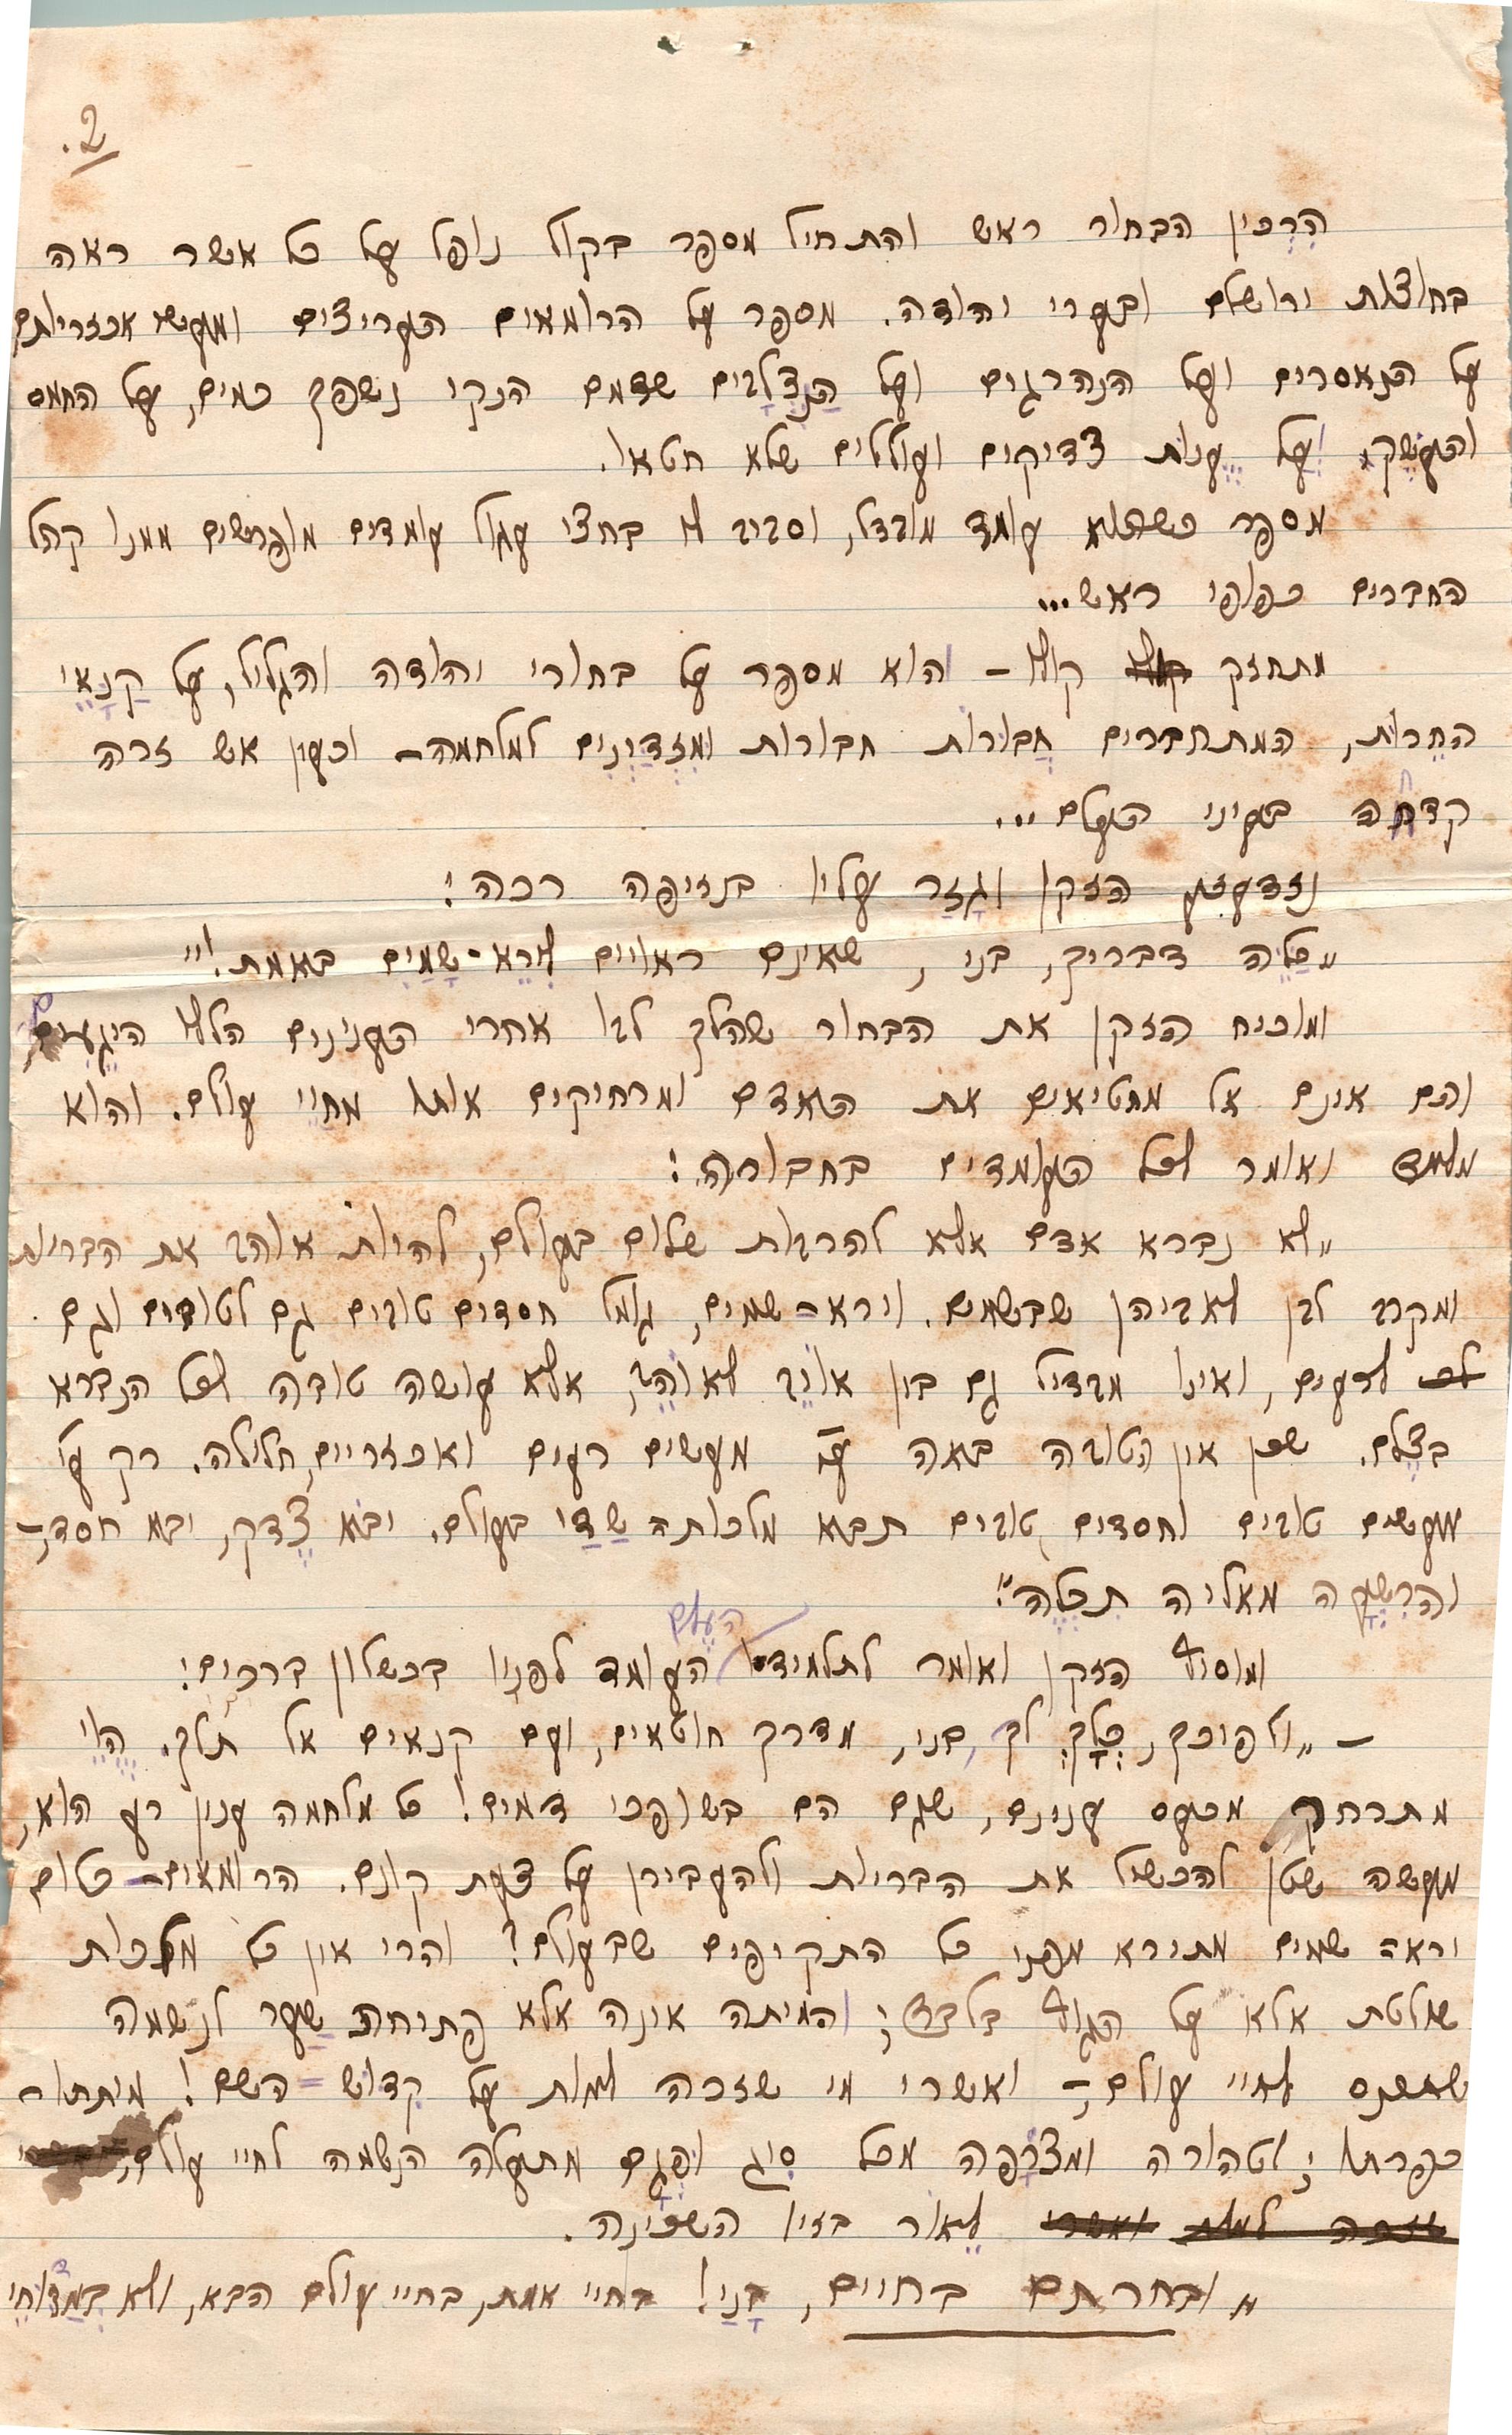 2.
הִרְכין הבחור ראש והתחיל מספר בקול נופל על כל אשר ראה
בחוצות ירושלם ובערי יהודה. מספר על הרומאים העריצים ומעשי אכזריותם
על הנאסרים ועל הנהרגים ועל הַנִצְלָבים שדמם הנקי נשפך כמים, על החמס
והעשֶק, וְעַל עֱנוּת צדיקים ועוללים שלא חטאו.
מספר כשהוא עומד מובדל, וסביב לו בחצי עגול עומדים מופרשים ממנו קהל
החברים כפופי ראש...
מתחזק קולו – והוא מספר על בחורי יהודה והגליל, על קַנָאֵי
החֵרות, המתחברים חֲבורות חבורות ומִזְדַיְנִים למלחמה – וכעין אש זרה
קדחה בעיני העלם...
נזדעזע הזקן וגָזַר עליו בנזיפה רכה:
„כַּלֵה דבריך, בני, שאינם ראויים לִירֵא-שָמַיִם באמת!"
ומוכיח הזקן את הבחור שהלך לבו אחרי הענינים הללו היגֵעִים
והם אינם אל מחטיאים את האדם ומרחיקים אותו מחַיֵי עולם. והוא
מלמד ואומר לכל העומדים בחבורה:
„לא נברא אדם אלא להרבות שלום בעולם, להיות אוהב את הבריות
ומקרב לבן לאביהן שבשמים. וירא-שמים, גומל חסדים טובים גם לטובים וגם
לרעים, ואינו מבדיל גם בין אויֵב לאוהֵב, אלא עושה טובה לכל הנברא
בצֶלם. שכן אין הטובה באה ע"י מעשים רעים ואכזריים, חלילה. רק ע"י
מעשים טובים וחסדים טובים תבוא מלכותה שַדַי בעולם. יבֹא צֶדק, יבוא חסד, –
והרִשְעָה מאליה תִכְלֶה".
ומוסיף הזקן ואומר לתלמידו העֶלֶם העומד לפניו בכשלון ברכים:
– „ולפיכך, כְּלָךְ לך, בני, מדרך חוטאים, ועם קנאים אל תלך. הֱוֵי
מתרחק מכעס ענינם, שגם הם בשופכי דמים! כל מלחמה ענין רע הוא,
מעשה שטן להכשיל את הבריות ולהעבירן על דעת קונם. הרומאים – כלום
ירא שמים מתירא מפני כל התקיפים שבעולם? והרי אין כל מלכות
שולטת אלא על הגוף בלבד; והמיתה אינה אלא פתיחת שַער לנשמה
שתכנס לחיי עולם, – ואשרי מי שזכה למות על קִדוש-השם! מיתתו –
כפרתו; וטהורה ומצֹרָפה מכל סיג וּפְגָם מתעלה הנשמה לחיי עולם,
לֵיאור בזיו השכינה.
„ובחרתם בחיים, בָּנַי! בחיי אמת, בחיי עולם הבא, ולא בְמַצוחֵי